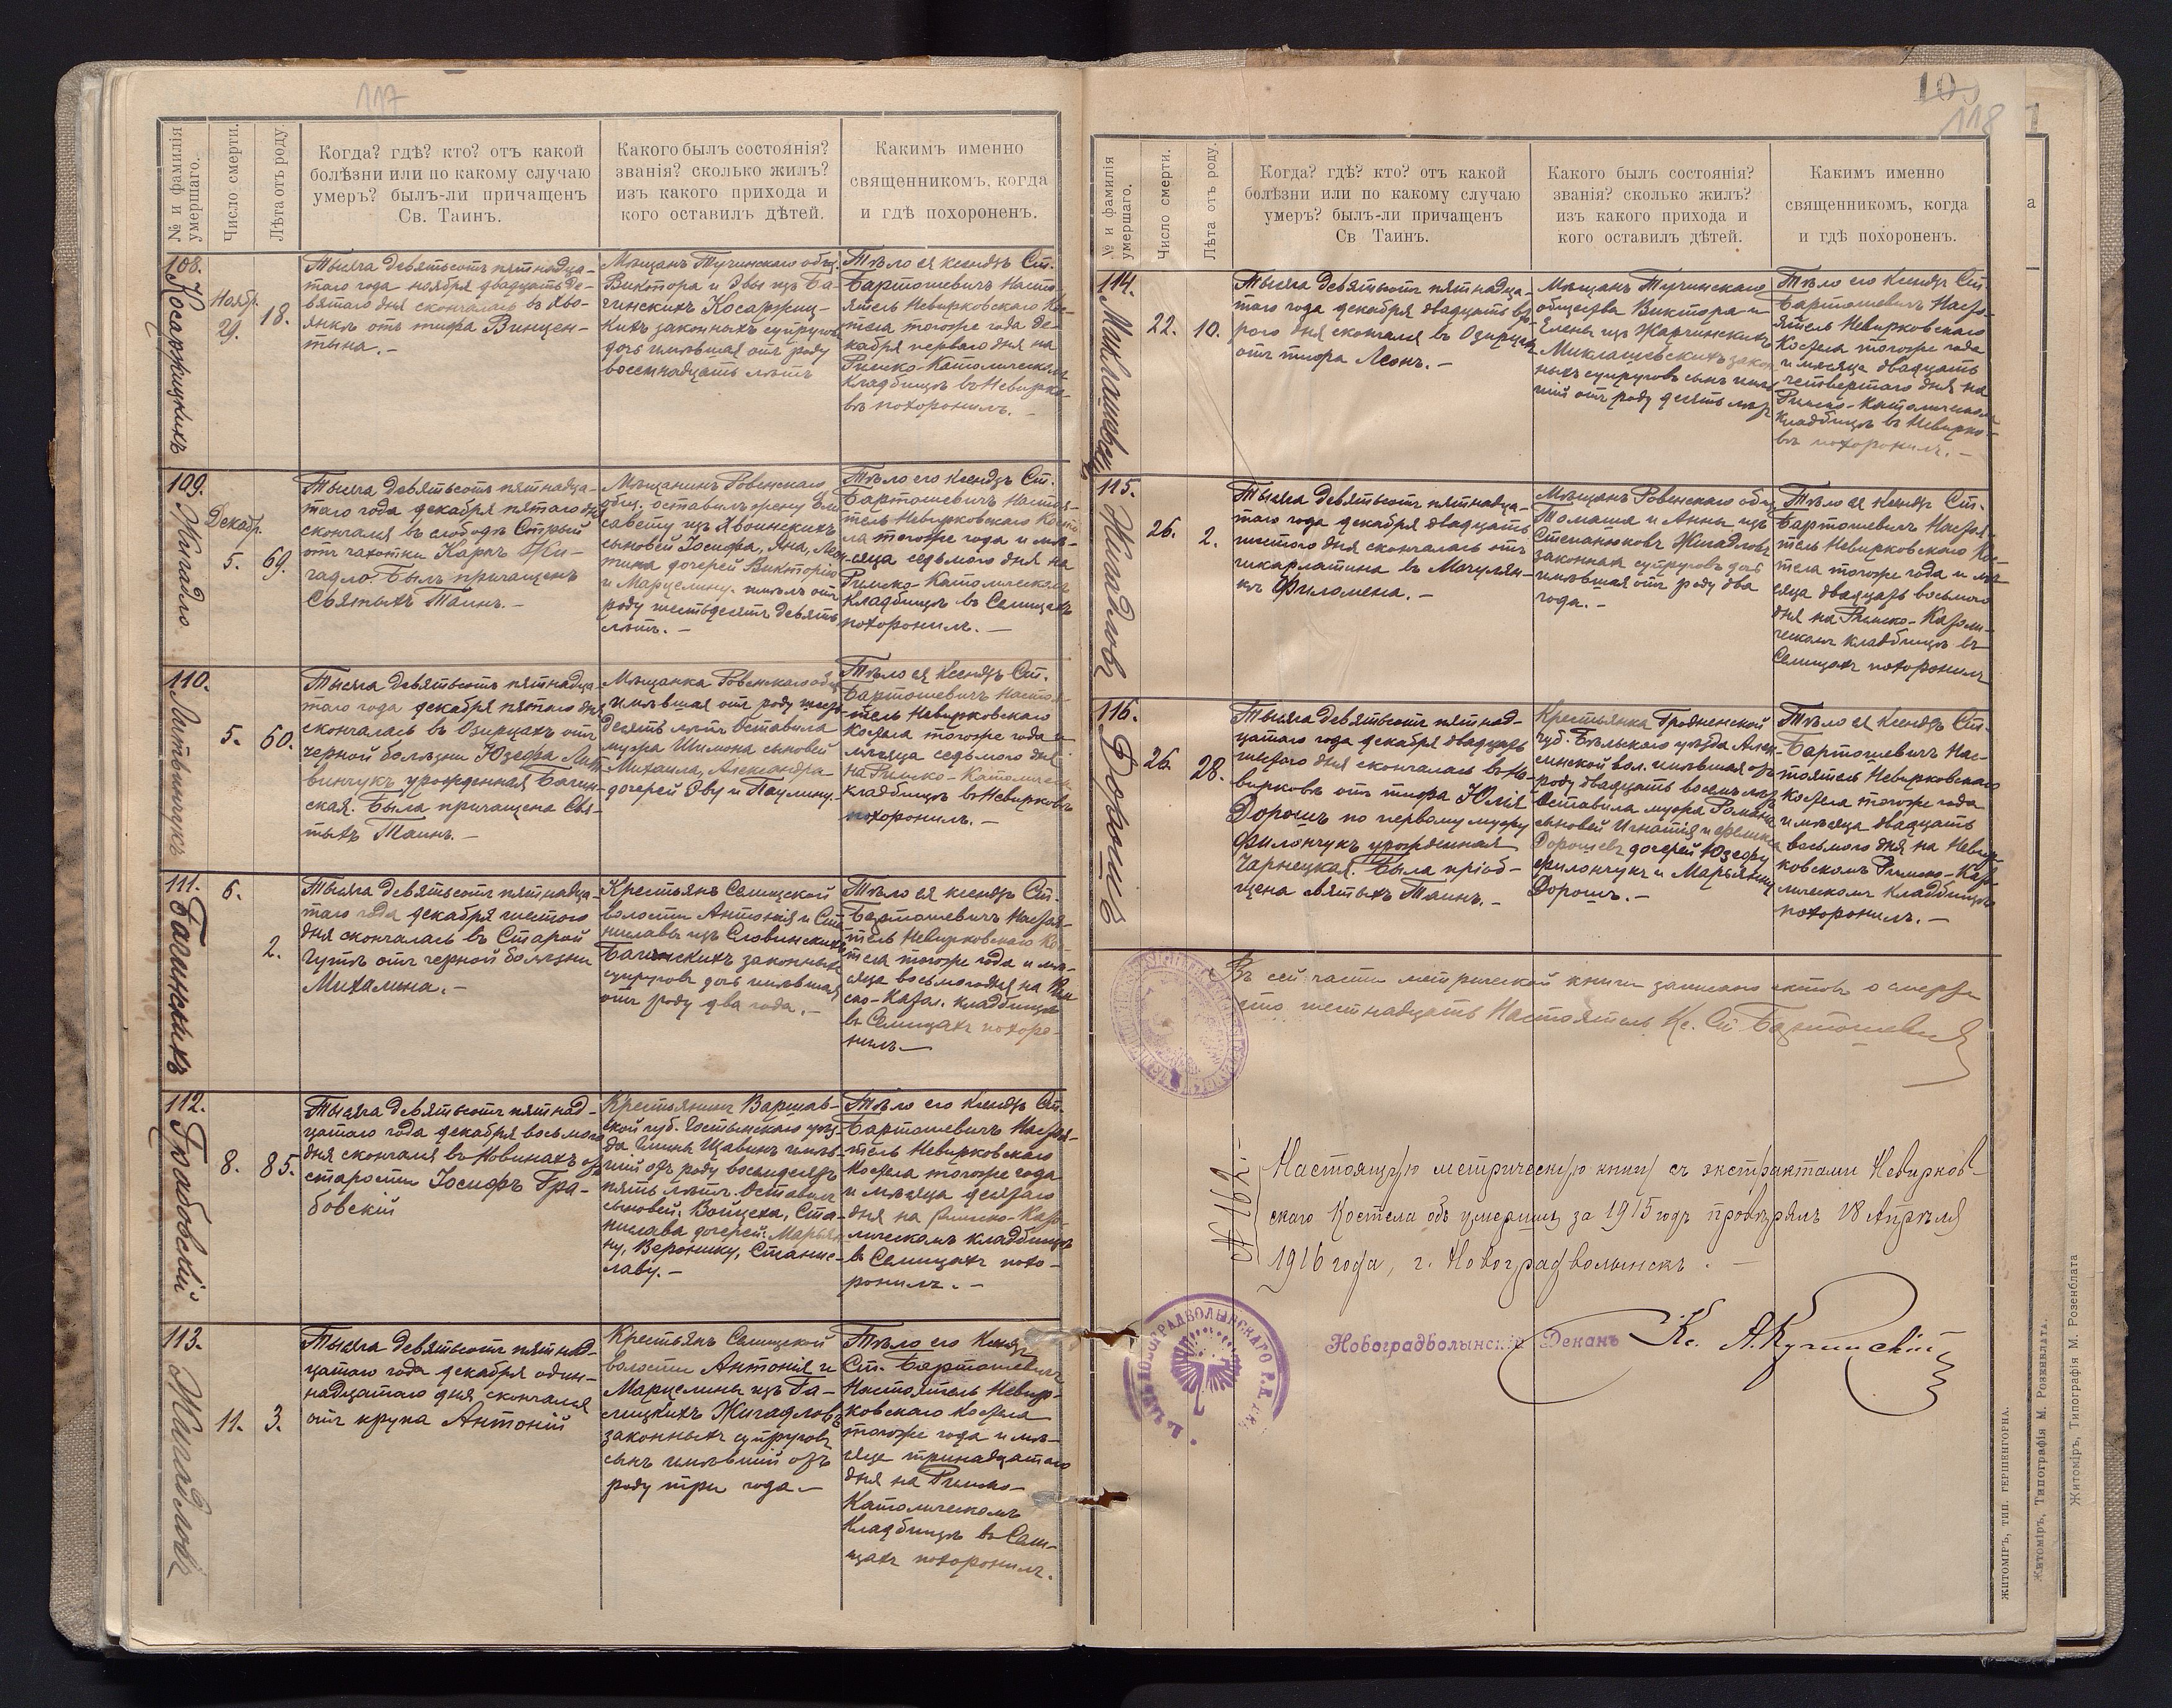 117
№ и фамилія умершаго.
Число смерти.
Лѣта отъ роду.
Когда? гдѣ? кто? отъ какой
болѣзни или по какому случаю
умеръ? былъ-ли причащенъ
Св. Таинъ.
Какого былъ состоянія?
званія? сколько жилъ?
изъ какого прихода и
кого оставилъ дѣтей.
Какимъ именно
священникомъ, когда
и гдѣ похороненъ.
108.
Косаржицкихъ
Ноябр.
29.
18.
Тысяча девятьсотъ пятнадца-
таго года ноября двадцать де-
вятаго дня скончалась въ Яво-
янкѣ отъ тифа Винцен-
тына.-
Мѣщанъ Тучинскаго общ.
Виктора и Эвы изъ Ба-
гинскихъ Косаржиц-
кихъ законныхъ супруговъ
дочь имѣвшая отъ роду
восемнадцать лѣтъ
Тѣло ея ксендзъ Ст.
Бартошевичъ Насто-
ятель Невирковскаго Кос-
тела тогоже года де-
кабря перваго дня на
Римско-Католическом
кладбищѣ въ Невирко-
вѣ похоронилъ.-
109.
Жигадло
Декабр.
5.
69.
Тысяча девятьсотъ пятнадца-
таго года декабря пятаго дн
скончался въ слободѣ Стрый
отъ чахотки Карлъ Жи-
гадло. Былъ причащенъ
Святыхъ Таинъ.-
Мѣщанинъ Ровенскаго
общ. оставилъ жену Ели
савету изъ Явоинскихъ
сыновей Іосифа, Яна, Мар
тина дочерей Викторію
и Марцелину. имѣлъ отъ
роду шестьдесятъ девять
лѣтъ.-
Тѣло его Ксендзъ Ст.
Бартошевичъ Настоя-
тель Невирковскаго Косте
ла тогоже года и мѣ-
сяца седьмого дня на
Римско-Католическом
кладбищѣ въ Селищахъ
похоронилъ.-
110.
Литвинчукъ
5.
60.
Тысяча девятьсотъ пятнадца-
таго года декабря пятаго дня
скончалась въ Озирцахъ отъ
черной болѣзни Юзефа Лит
винчукъ урожденная Багин-
ская. Была причащена Свя-
тыхъ Таинъ.-
Мѣщанка Ровенскаго общ
имѣвшая отъ роду шест
десять лѣтъ Оставила
мужа Шимона сыновей
Михаила, Александра
дочерей Эву и Паулину.
Тѣло ея Ксендзъ Ст.
Бартошевичъ Настоя-
тель Невирковскаго
Костела тогоже года и
мѣсяца седьмого дня
на Римско-Католическ
кладбищѣ въ Невирковѣ
похоронилъ.-
111.
Багинскихъ
6.
2.
Тысяча девятьсотъ пятнадца-
таго года декабря шестого
дня скончалась въ Старой
Гутѣ отъ черной болѣзни
Михалина.-
Крестьянъ Селищской
волости Антонія и Ста
ниславы изъ Словинскихъ
Багинскихъ законныхъ
супруговъ дочь имѣвшая
отъ роду два года.-
Тѣло ея ксендзъ Ст.
Бартошевичъ Настоя-
тель Невирковскаго Ко-
стела тогоже года и мѣ-
сяца восьмого дня на Рим
ско-Катол. кладбищѣ
въ Селищахъ похоро-
нилъ.-
112.
Грабовскій
8.
85.
Тысяча девятьсотъ пятнад-
цатаго года декабря восьмого
дня скончался въ Новинахъ отъ
старости Іосифъ Гра-
бовскій
Крестьянинъ Варшав-
ской губ. Гостынскаго уѣз-
да гмины Щавинъ имѣв-
шій отъ роду восемдесятъ
пять лѣтъ. Оставилъ
сыновей: Войцеха, Ста-
нислава дочерей: Марьян
ну, Веронику, Станис-
лаву.-
Тѣло его Ксендзъ Ст.
Бартошевичъ Настоя-
тель Невирковскаго
Костела тогоже года
и мѣсяца десятаго
дня на Римско-Като-
лическомъ кладбищѣ
въ Селищахъ похо-
ронилъ.-
113.
Жигадловъ
11.
3.
Тысяча девятьсотъ пятнад-
цатаго года декабря один-
надцатаго дня скончался
отъ крупа Антоній
Крестьянъ Селищской
волости Антонія и
Марцелины изъ Га-
лицкихъ Жигадловъ
законныхъ супруговъ
сынъ имѣвшій отъ
роду три года.-
Тѣло его Ксендзъ
Ст. Бартошевичъ
Настоятель Невир-
ковскаго Костела
тогоже года и мѣ-
сяца тринадцатаго
дня на Римско-
Католическомъ
кладбищѣ въ Сели-
щахъ похоронилъ.
118
№ и фамилія умершаго.
Число смерти.
Лѣта отъ роду.
Когда? гдѣ? кто? отъ какой
болѣзни или по какому случаю
умеръ? былъ-ли причащенъ
Св Таинъ.
Какого былъ состоянія?
званія? сколько жилъ?
изъ какого прихода и
кого оставилъ дѣтей.
Какимъ именно
священникомъ, когда
и гдѣ похороненъ.
114.
22.
10.
Тысяча девятьсотъ пятнадца-
таго года декабря двадцать вто-
рого дня скончался въ Озирцахъ
отъ тифа Леонъ.-
Мѣщанъ Тучинскаго
общества Виктора и
Елены изъ Жарчинскихъ
Миклашевскихъ закон
ныхъ супруговъ сынъ имѣв
шій отъ роду десять лѣтъ
Тѣло его Ксендзъ Ст.
Бартошевичъ Насто-
ятель Невирковскаго
Костела тогоже года
и мѣсяца двадцать
четвертаго дня на
Римско-Католическом
кладбищѣ въ Невирко-
вѣ похоронилъ.-
115.
Жигадловъ
26.
2.
Тысяча девятьсотъ пятнадца-
таго года декабря двадцать
шестого дня скончалась отъ
шкарлатина въ Могулян-
кѣ Филомена.-
Мѣщанъ Ровенскаго общ
Томаша и Анны изъ
Степанюковъ Жигадловъ
законныхъ супруговъ дочь
имѣвшая отъ роду два
года.-
Тѣло ея Ксендзъ Ст.
Бартошевичъ Настоя-
тель Невирковскаго Ко-
стела тогоже года и мѣ-
сяца двадцать восьмого
дня на Римско-Католи-
ческомъ кладбищѣ въ
Селищахъ похоронилъ
116.
Дорошъ
26.
28.
Тысяча девятьсотъ пятнад-
цатаго года декабря двадцать
шестого дня скончалась въ Не-
вирковѣ отъ тифа Юлія
Дорошъ по первому мужу
Филончукъ урожденная
Чарнецкая. Была пріоб-
щена святыхъ Таинъ.-
Крестьянка Гродненской
губ. Бѣльскаго уѣзда Алек-
синской вол. имѣвшая отъ
роду двадцать восемь лѣтъ
Оставила мужа Романа
сыновей Игнатія и Феликса
Дорошевъ дочерей Юзефу
Филончукъ и Марьянну
Дорошъ.-
Тѣло ея Ксендзъ Ст.
Бартошевичъ Нас-
тоятель Невирковскаго
Костела тогоже года
и мѣсяца двадцать
восьмого дня на Невир-
ковскомъ Римско-Като-
лическомъ кладбищѣ
похоронилъ.-
Въ сей части метрической книги записано актовъ о смерти
сто шестнадцать Настоятель Кс. Ст Бартошевичъ
№ 162.
Настоящую метрическую книгу съ экстрактами Невирков-
скаго Костела объ умершихъ за 1915 годъ провѣрялъ 18 Апрѣля
1916 года, г. Новоградволынскъ.-
Новоградволынскій Деканъ
Кс. А. Кучинскій
ЖИТОМІРЪ, ТИП. ГЕРШЕНГОРНА.
Житоміръ, Типографія М. Розенблата.
Житоміръ, Типографія М. Розенблата